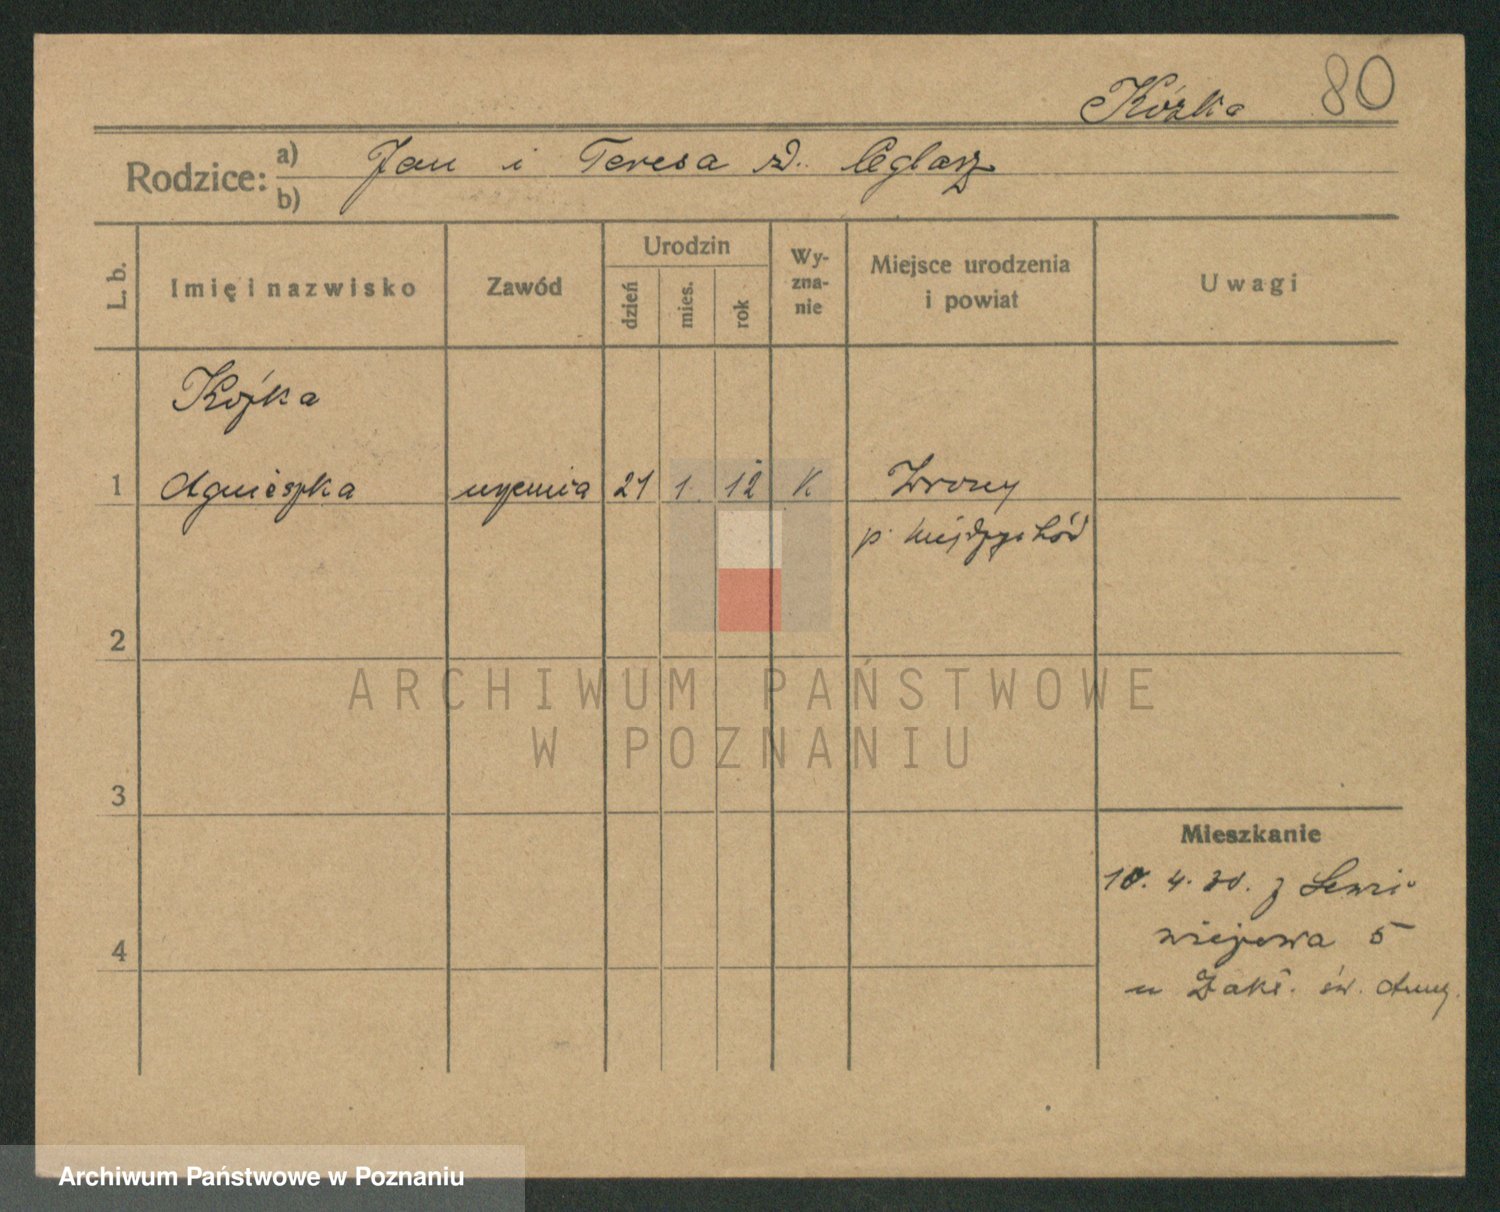 Kózka 80
Rodzice: a) Jan i Teresa z d. Ceglarz
b)
L. b. Imię i nazwisko Zawód Urodzin dzień mies. rok Wyzna-nie Miejsce urodzenia i powiat Uwagi
Kózka
1 Agnieszka uczenica 21 1. 12 K
p. Międzychód
2
ARCHIWUM PAŃSTWOWE
W POZNANIU
3
Mieszkanie
10. 4. 30. z
5
4
u Zakł. św. Anny.
Archiwum Państwowe w Poznaniu